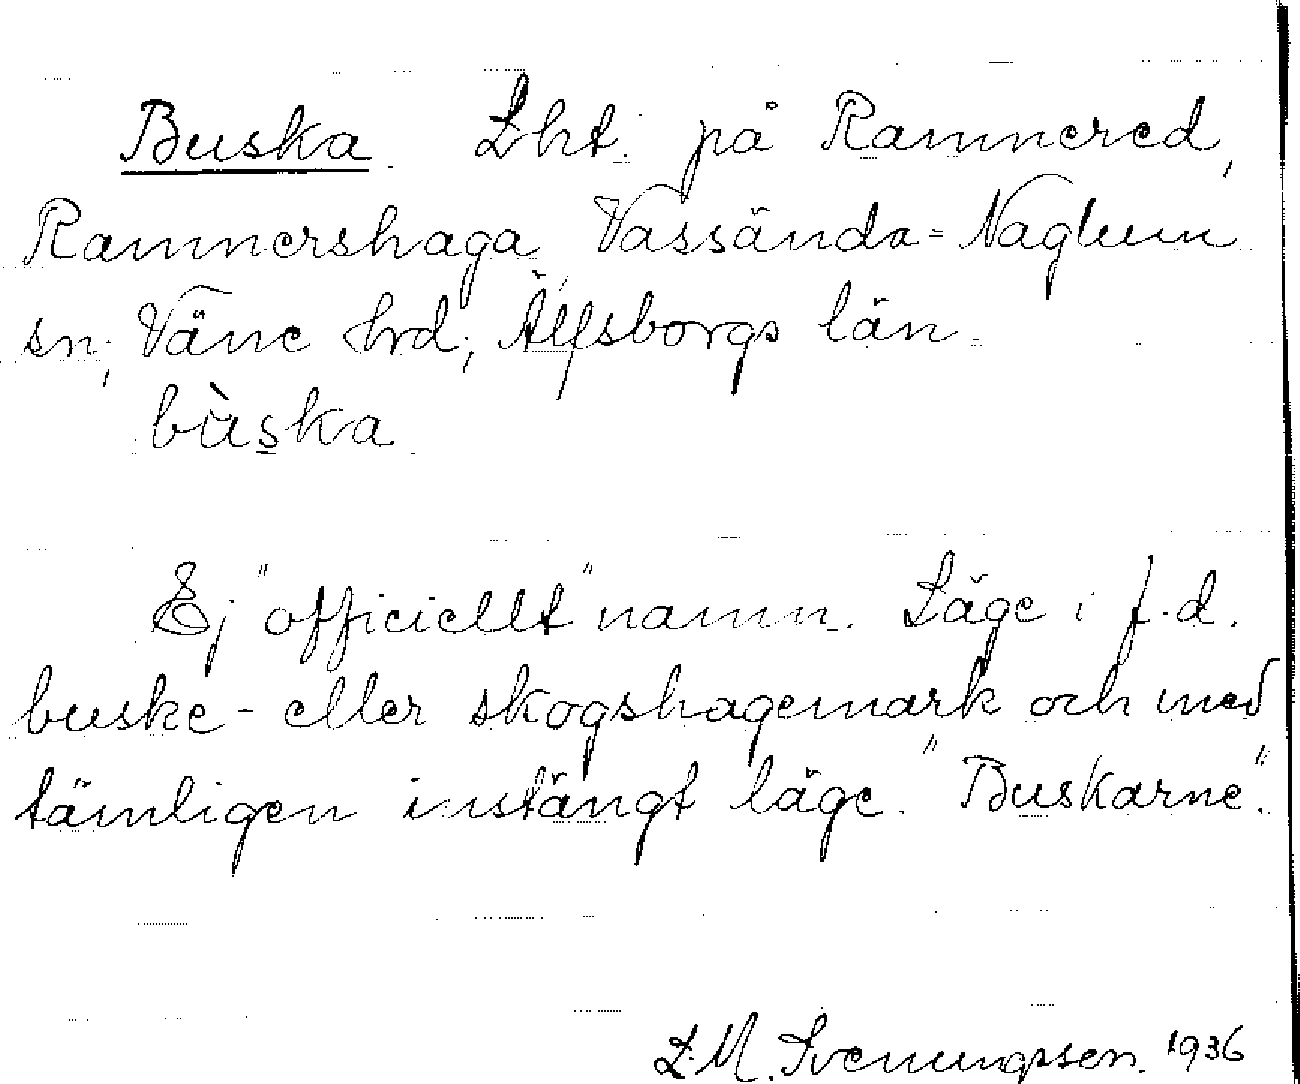 Buska. Lht. på Ramnered,
Ramnershaga Vassända-Naglum
sn, Väne hrd, Älfsborgs län.
bùska
Ej "officiellt" namn. Läge i f.d.
buske- eller skogshagemark och med
tämligen instängt läge. "Buskarne".
L.M. Svenungsson. 1936